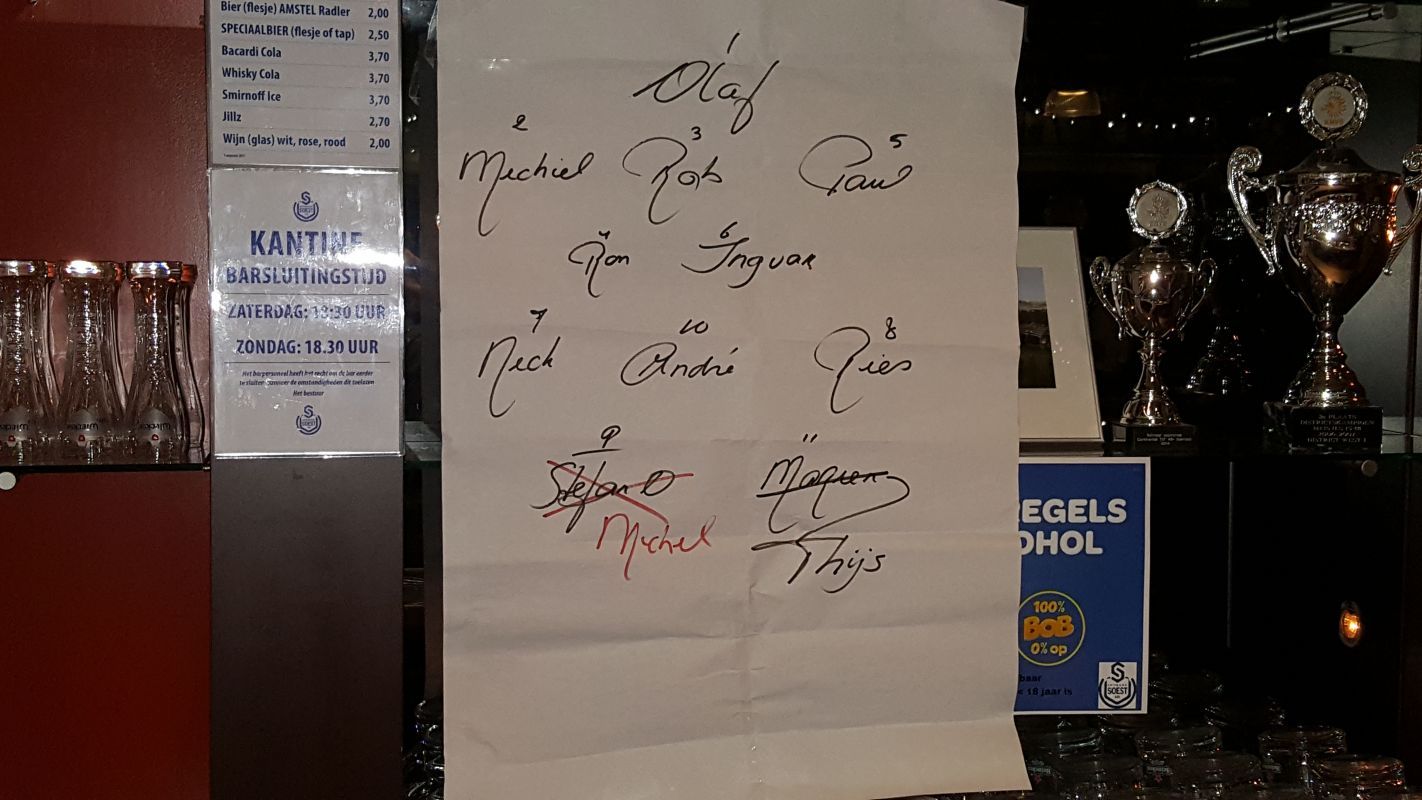 Bier (flesje) AMSTEL Radler 2,00
SPECIAALBIER (flesje of tap) 2,50
Bacardi Cola 3,70
Whisky Cola 3,70
Smirnoff Ice 3,70
Jillz 2,70
Wijn (glas) wit, rose, rood 2,00
S
SOEST
KANTINE
BARSLUITINGSTIJD
ZATERDAG: 18:30 UUR
ZONDAG: 18.30 UUR
Het barpersoneel heeft het recht om de bar eerder
te sluiten wanneer de omstandigheden dit toelaten
Het bestuur
1
Olaf
2 3 5
Mechiel Rob Paul
4 6
Ron Ingvar
7 10 8
Nick André Ries
9 11
Stefan O
Michel
Thijs
REGELS
OHOL
100%
BOB
0% op
baar
< 18 jaar is
S
SOEST